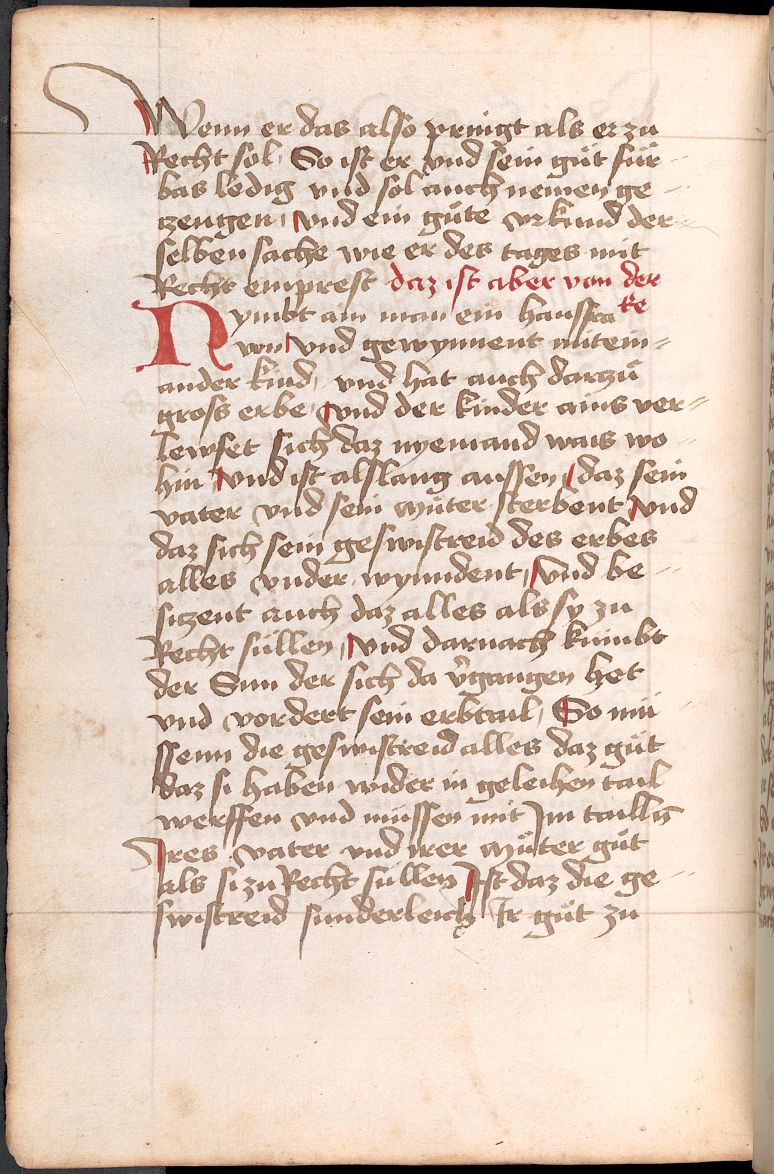 Wenn er das also pringt als er zu
Recht sol So ist er vnd sein gůt für
bas ledig vnd sol auch nemen ge
zeugen vnd ein gute vrkund der
selben sache wie er des tages mit
Recht emprest daz ist aber von der
Nymbt am man ein haussfra
won vnd gewynnent mitein
ander kind vnd hat auch darzů
gross erbe vnd der kinder ains ver
lewset sich daz nyemand wais wo
hin vnd ist alslang aussen daz sein
vater vnd sein můter sterbent vnd
daz sich sein geswistreid des erbes
alles vnder wyndent vnd be
siczent auch daz alles als sy zu
Recht süllen vnd darnach kümbt
der Sun der sich da vergangen het
vnd vordert sein erbtail So mü
ssenn die geswistreid alles daz gůt
daz si haben wider in geleihen tail
werffen vnd müssen mit Im taillen
Ires vater vnd irer můter gůt
als si zu Recht süllen Ist daz die ge
swistreid sunderleich Ir gůt zu